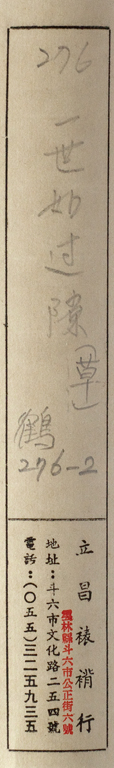 276
一世如过隙(草)
鶴
276-2
立昌裱褙行
雲林縣斗六市公正街六號
地址：斗六市文化路二五四號
電話：(〇五五)三二五九三五